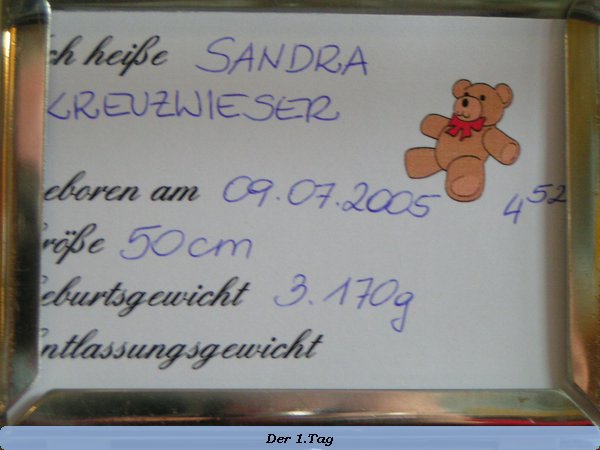 ch heiße SANDRA
KREUZWIESER
eboren am 09.07.2005 4 52
röße 50cm
eburtsgewicht 3.170g
ntlassungsgewicht
Der 1.Tag